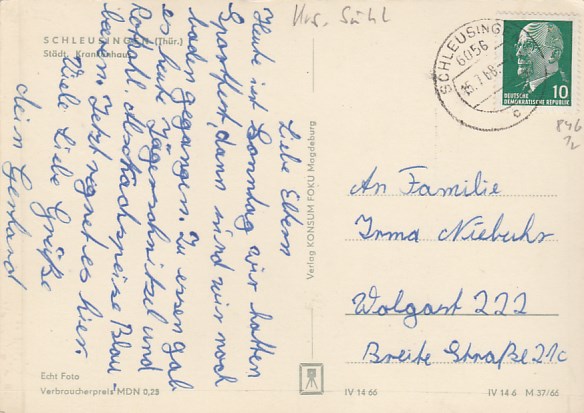 Krs. Suhl
SCHLEUSINGEN (Thür.)
Städt. Krankenhaus
Liebe Eltern
Heute ist Sonntag wir hatten
Sportfest, dann sind wir noch
baden gegangen. Zu essen gab
es heute Jägerschnitzel und
Rotkohl. Als Nachspeise Blau-
beeren. Jetzt regnet es hier.
Viele Liebe Grüße
dein Gerhard
Echt Foto
Verbraucherpreis MDN 0,25
Verlag KONSUM FOKU Magdeburg
SCHLEUSINGEN
6056
15.7.68
c
10
DEUTSCHE
DEMOKRATISCHE REPUBLIK
846
An Familie
Irma Niebuhr
Wolgast 222
Breite Straße 21c
IV 14 66
IV 14 6 M 37/66